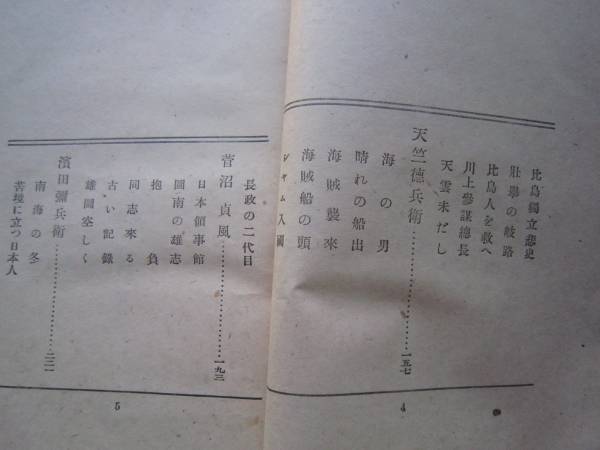 比島獨立悲史
壯擧の岐路
比島人を救へ
川上參謀總長
天雲未だし
天竺德兵衞……………………一五七
海の男
晴れの船出
海賊襲來
海賊船の頭
シャム入國
4
長政の二代目
菅沼貞風……………………一九三
日本領事館
圖南の雄志
抱負
同志來る
古い記錄
雄圖空しく
濱田彌兵衞……………………二二一
南海の冬
苦境に立つ日本人
5